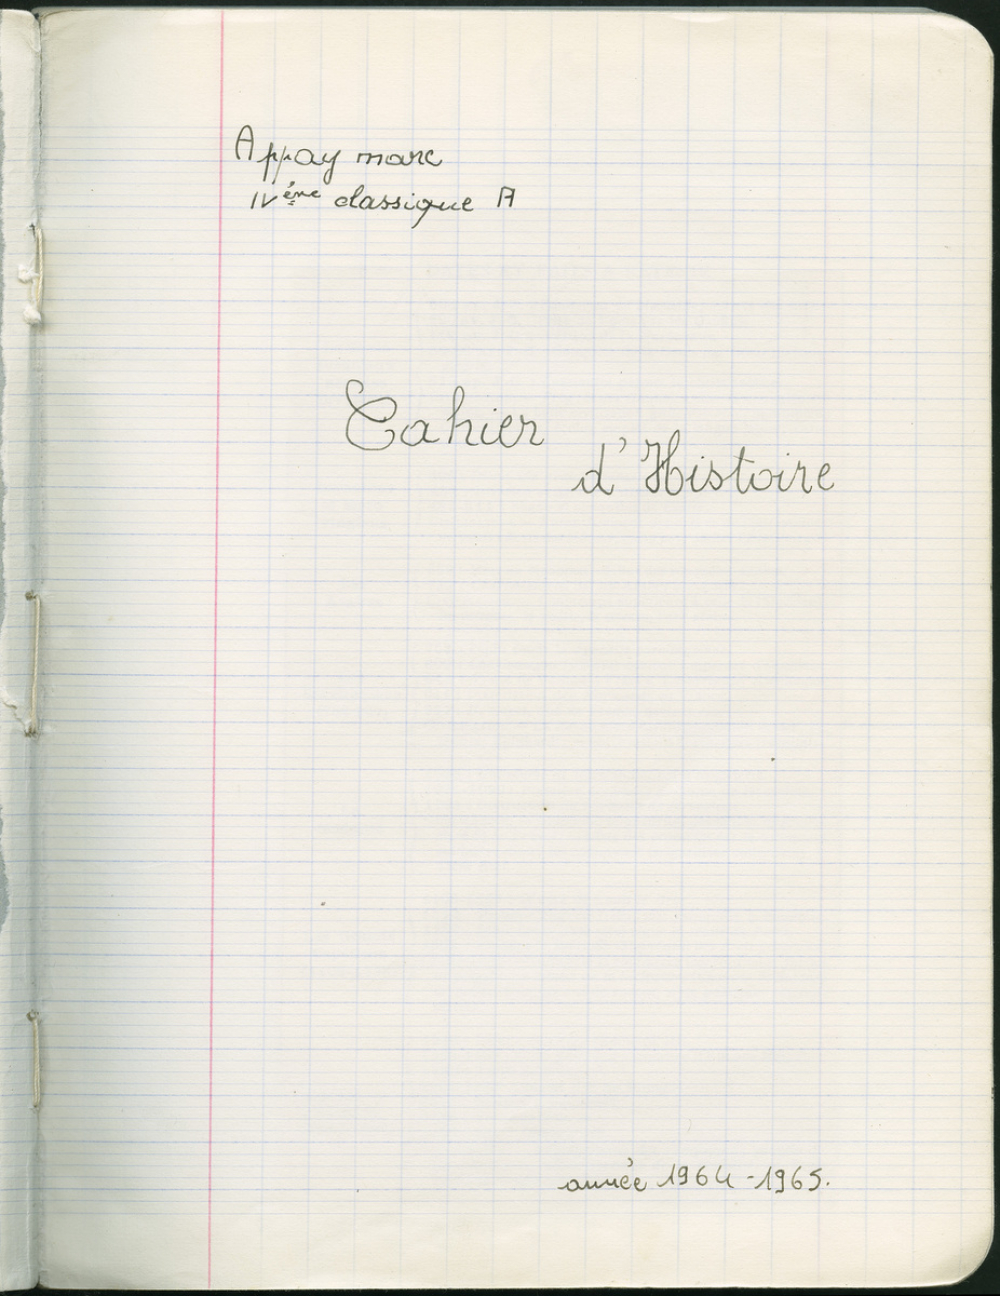 Appay marc
IVème classique A
Cahier
d'Histoire
année 1964-1965.